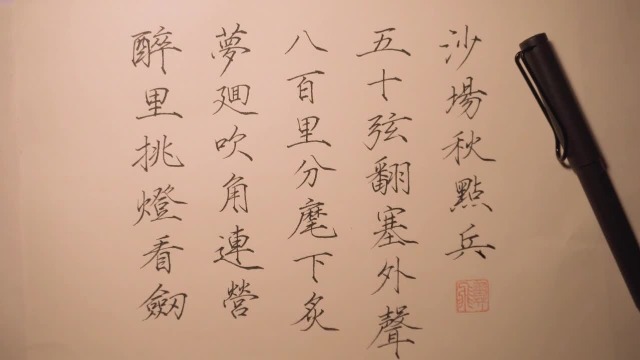 醉里挑燈看劒
夢廻吹角連營
八百里分麾下炙
五十弦翻塞外聲
沙場秋點兵